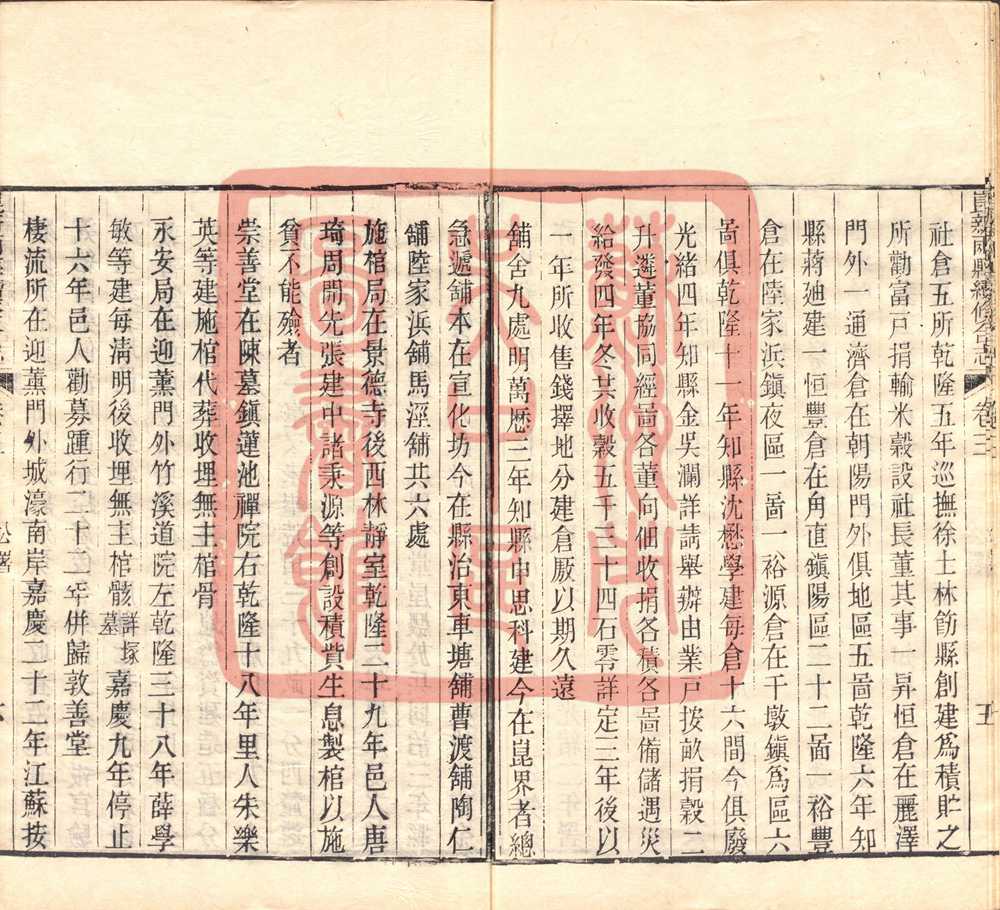 崑新兩縣續修合志 卷三 五
社倉五所乾隆五年巡撫徐士林飭縣創建爲積貯之
所勸富戶捐輸米穀設社長董其事一昇恒倉在麗澤
門外一通濟倉在朝陽門外俱地區五啚乾隆六年知
縣蔣廸建一恒豐倉在甪直鎭陽區二十二啚一裕豐
倉在陸家浜鎭夜區一啚一裕源倉在千墩鎭爲區六
啚俱乾隆十一年知縣沈懋學建每倉十六間今俱廢
光緒四年知縣金吳瀾詳請舉辦由業戶按畝捐穀二
升遴董協同經啚各董向佃收捐各積各啚備儲遇災
給發四年冬共收穀五千三十四石零詳定三年後以
一年所收售錢擇地分建倉厫以期久遠
舖舍九處明萬歷三年知縣申思科建今在崑界者總
急遞舖本在宣化坊今在縣治東車塘舖曹渡舖陶仁
舖陸家浜舖馬涇舖共六處
施棺局在景德寺後西林靜室乾隆二十九年邑人唐
琦周開先張建中諸秉源等創設積貲生息製棺以施
貧不能殮者
崇善堂在陳墓鎭蓮池禪院右乾隆十八年里人朱樂
英等建施棺代葬收埋無主棺骨
永安局在迎薰門外竹溪道院左乾隆三十八年薛學
敏等建每淸明後收埋無主棺骸詳塚墓嘉慶九年停止
十六年邑人勸募踵行二十二年併歸敦善堂
棲流所在迎薰門外城濠南岸嘉慶二十二年江蘇按